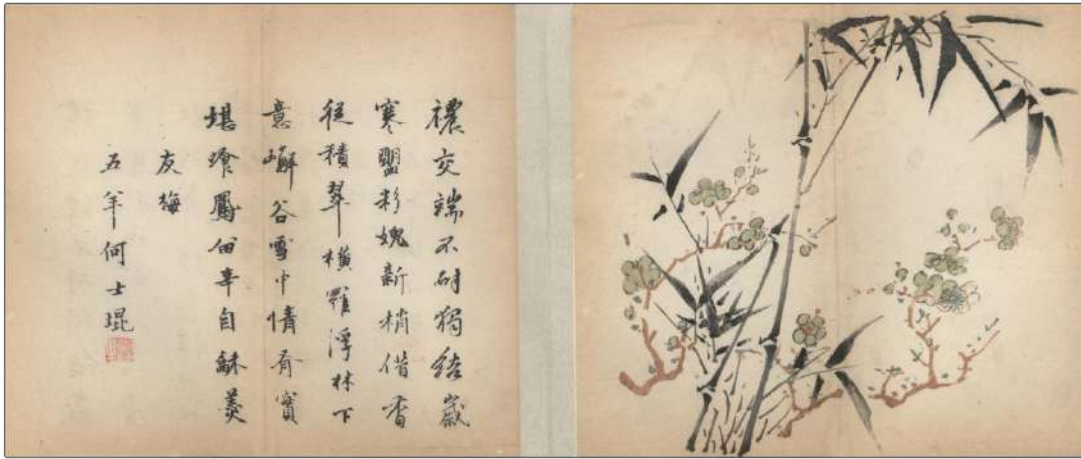 襛交端不耐獨結歲
寒盟彩媿新梢借香
從積翠橫羅浮林下
意嶰谷雪中情有實
堪飡鳳辛自龢羹
友梅
五羊何士琨